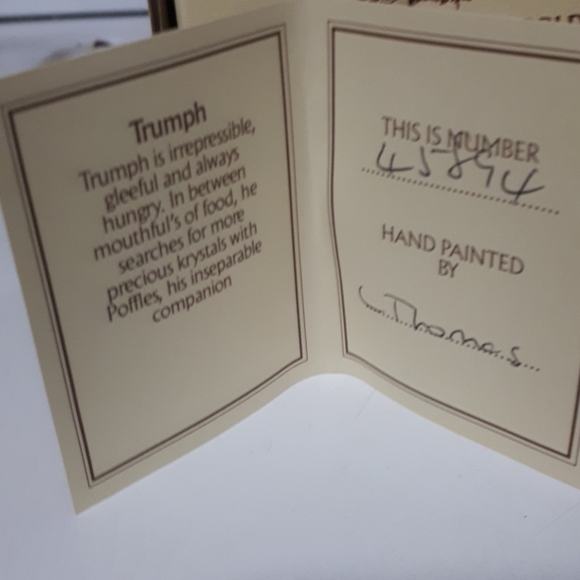 Trumph
Trumph is irrepressible,
gleeful and always
hungry. In between
mouthful's of food, he
searches for more
precious krystals with
Poffles, his inseparable
companion
THIS IS NUMBER
45894
HAND PAINTED
BY
Thomas